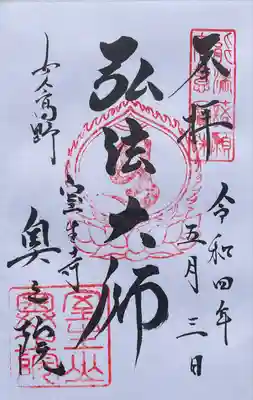 奉拝
令和四年
五月三日
弘法大師
女人高野
室生寺
奥之院